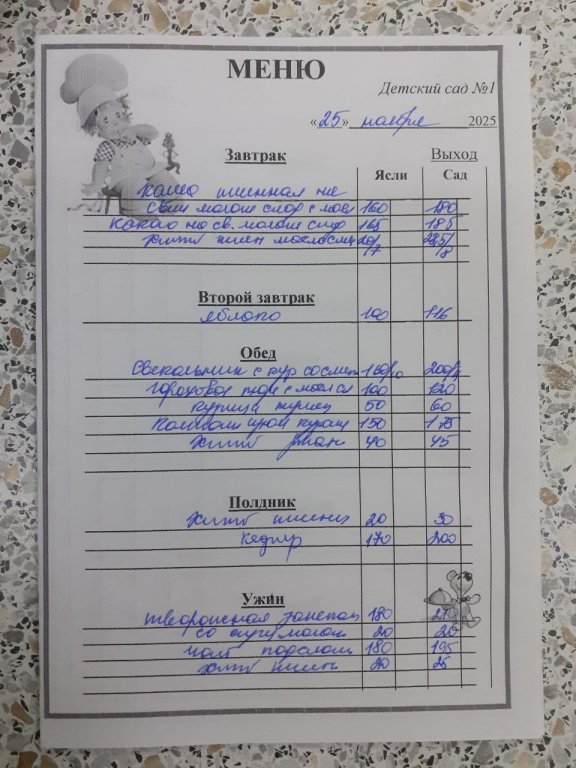 МЕНЮ
Детский сад №1
«25» ноября 2025
Завтрак Выход
Ясли Сад
каша пшенная на
свеж молоке слад с мас 160 180
какао на св. молоке слад 165 185
хлеб пшен маслослив 20/7 /8
Второй завтрак
яблоко 100 116
Обед
Свекольник с кур со смет
гороховое пюре с масл сл 100 120
курица туш 50 60
Компот 150 175
хлеб ржан 40 45
Полдник
хлеб пшенич 20 30
кефир 170 200
Ужин
творожная запекан 180
со сгущ молоком 20 20
чай подслащ 180 195
хлеб пшен 20 25